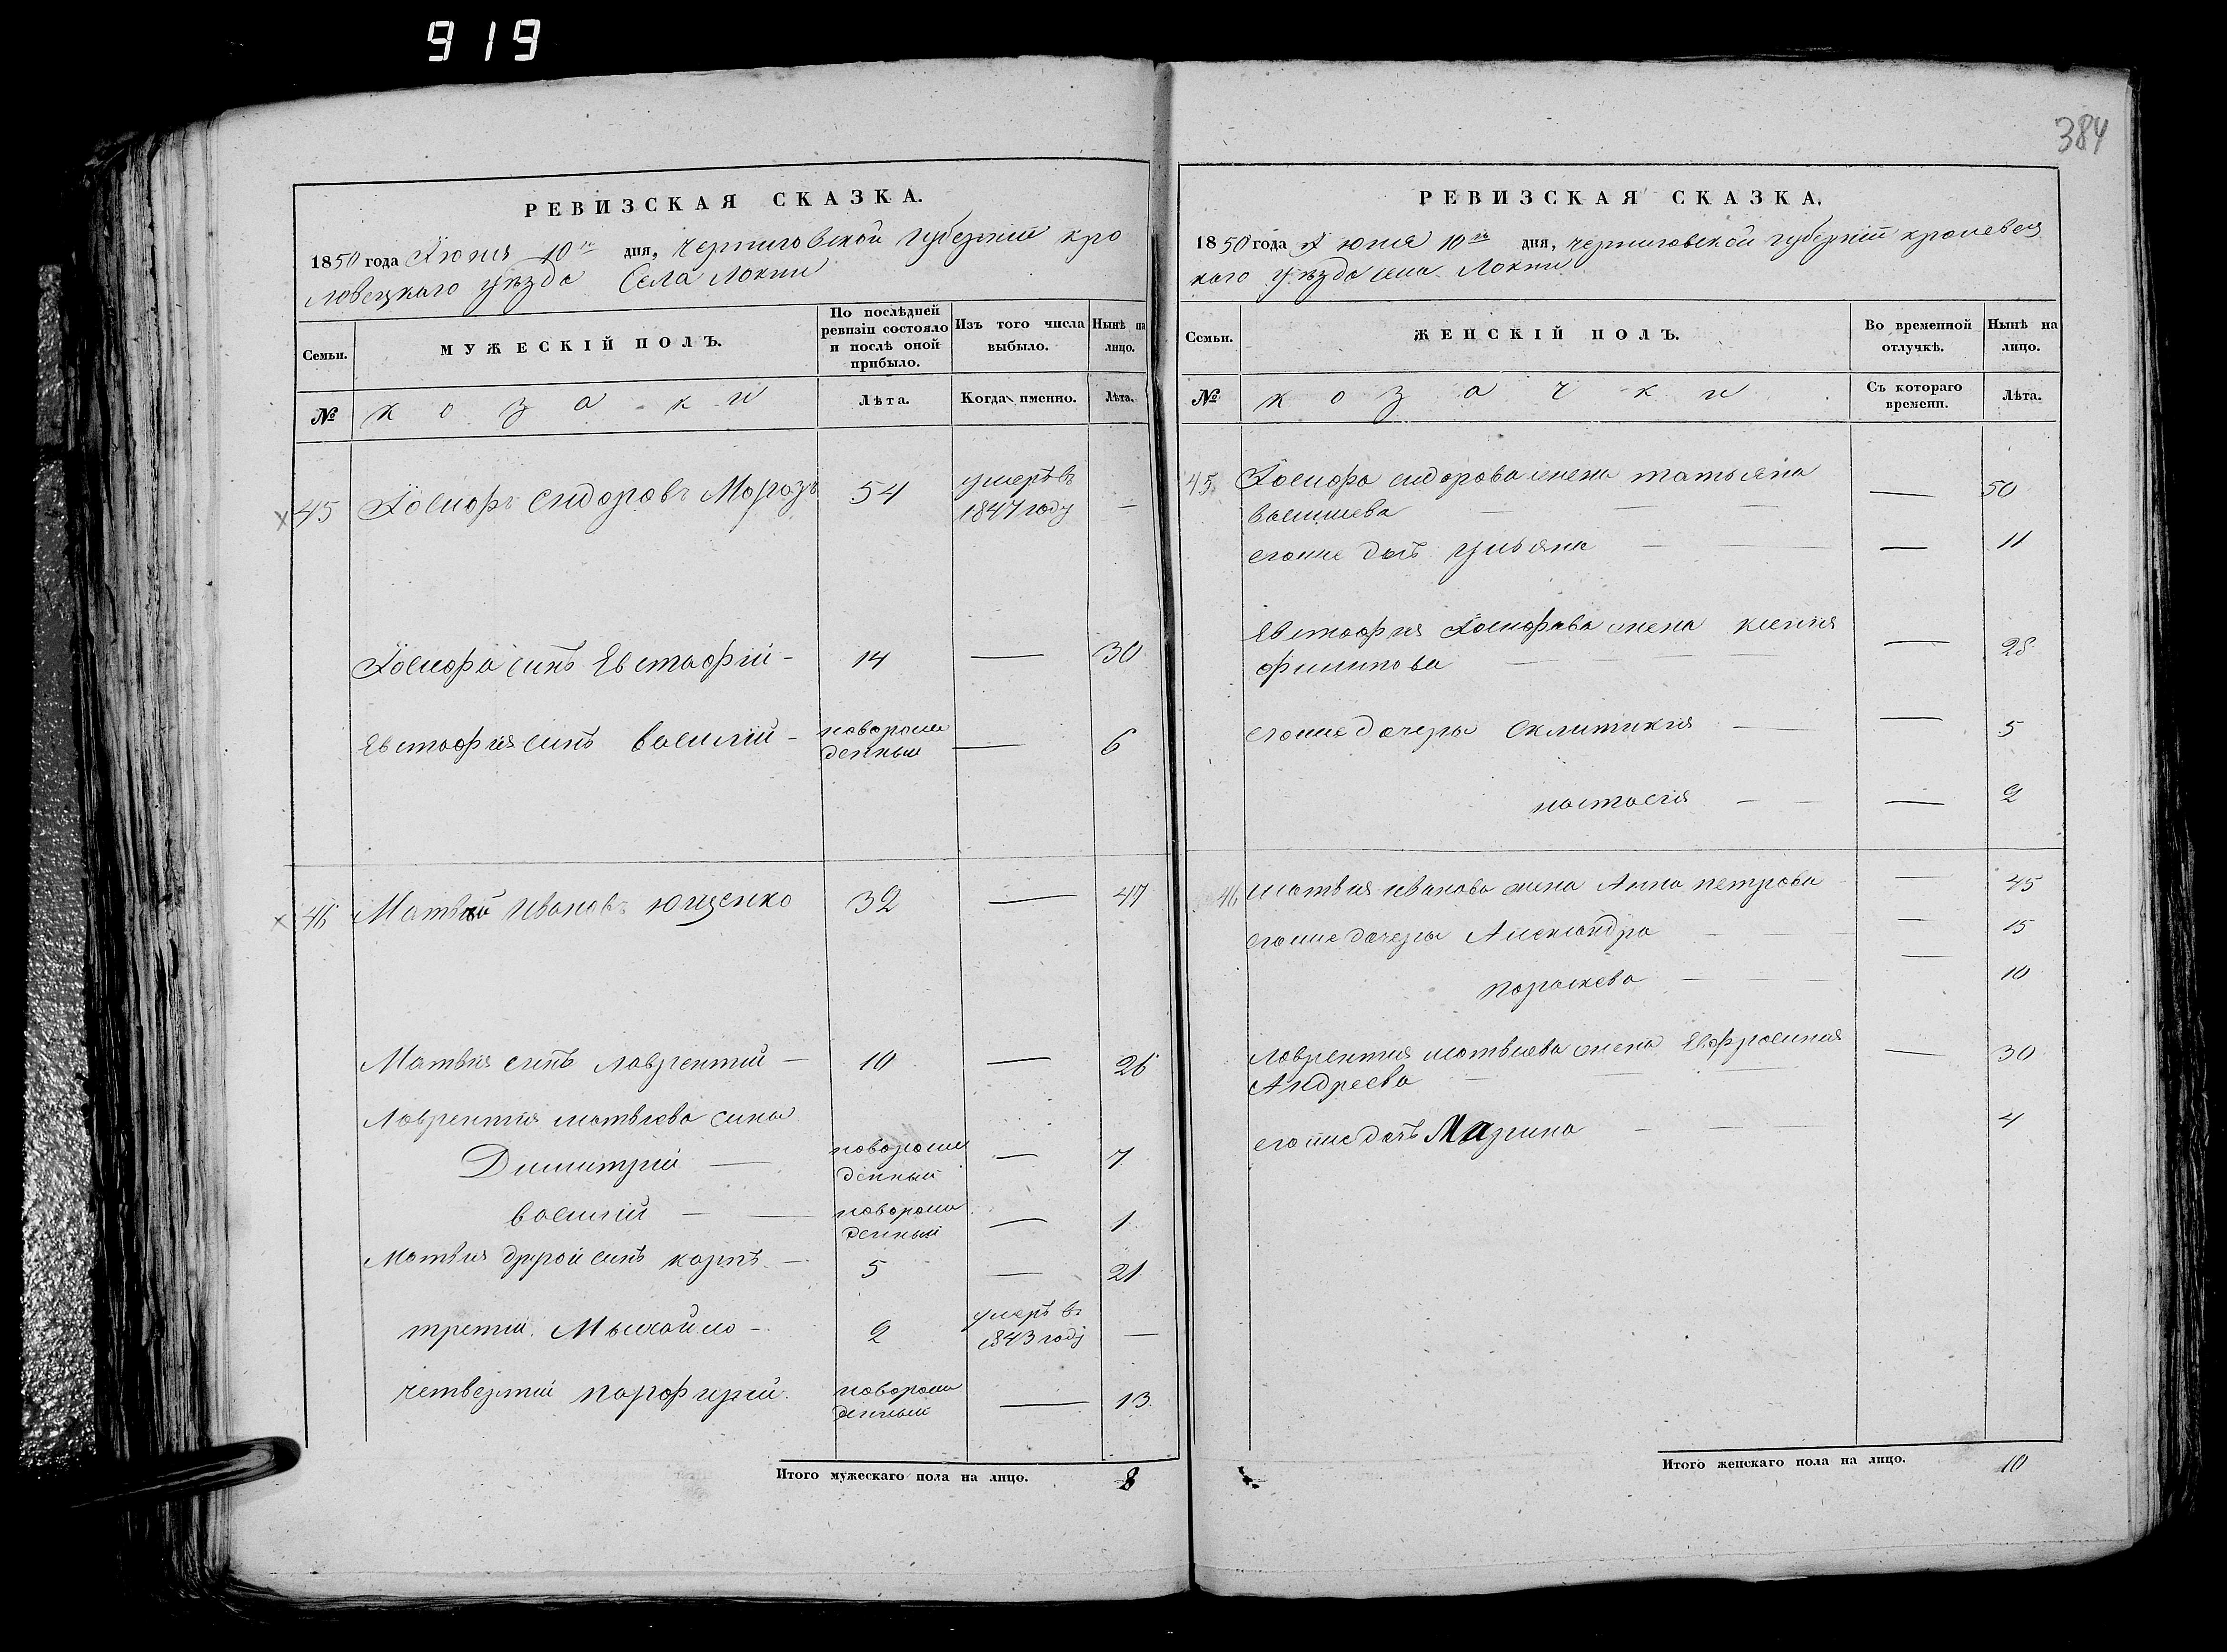 919
384
РЕВИЗСКАЯ СКАЗКА.
1850 года Іюня 10го дня, Черниговской губерніи кро
ловецкаго уезда Села Локни
Семьи.
МУЖЕСКІЙ ПОЛЪ.
По послѣдней ревизіи состояло и послѣ оной прибыло.
Изъ того числа выбыло.
Нынѣ на лицо.
№
козаки
Лѣта.
Когда именно.
Лѣта.
45 Іосифъ Сидоровъ Морозъ 54 умеръ въ 1847 году —
Іосифа синъ Евстафій — 14 — 30
Евстафія синъ василій — новорожденный — 6
46 Матвей Ивановъ Ющенко 32 — 47
Матвія синъ лаврентій — 10 — 26
Лаврентія матвіева сины
Димитрій — новорожденный — 7
василій — новорожденный — 1
Матвія другой синъ карпъ — 5 — 21
третій Мыхайло — 2 умеръ въ 1843 году —
четвертій парфирій новорожденный — 13
Итого мужескаго пола на лицо. 8
РЕВИЗСКАЯ СКАЗКА.
1850 года Іюня 10го дня, черниговской губерніи кролевец
каго уезда села Локни
Семьи.
ЖЕНСКІЙ ПОЛЪ.
Во временной отлучкѣ.
Нынѣ на лицо.
№
козачки
Съ котораго времени.
Лѣта.
45 Іосифа сидорова жена татьяна
василиева — 50
егоже дочь ульяна — 11
Евстафия Іосифова жена ксенія
филипова — 28
егоже дочеры Склитикія — 5
настасія — 2
46 матвия иванова жена Анна петрова — 45
егоже дочеры Александра — 15
параскева — 10
лаврентия матвиева жена Евфросиния — 30
Андреева
егоже дочь Марина — 4
Итого женскаго пола на лицо. 10